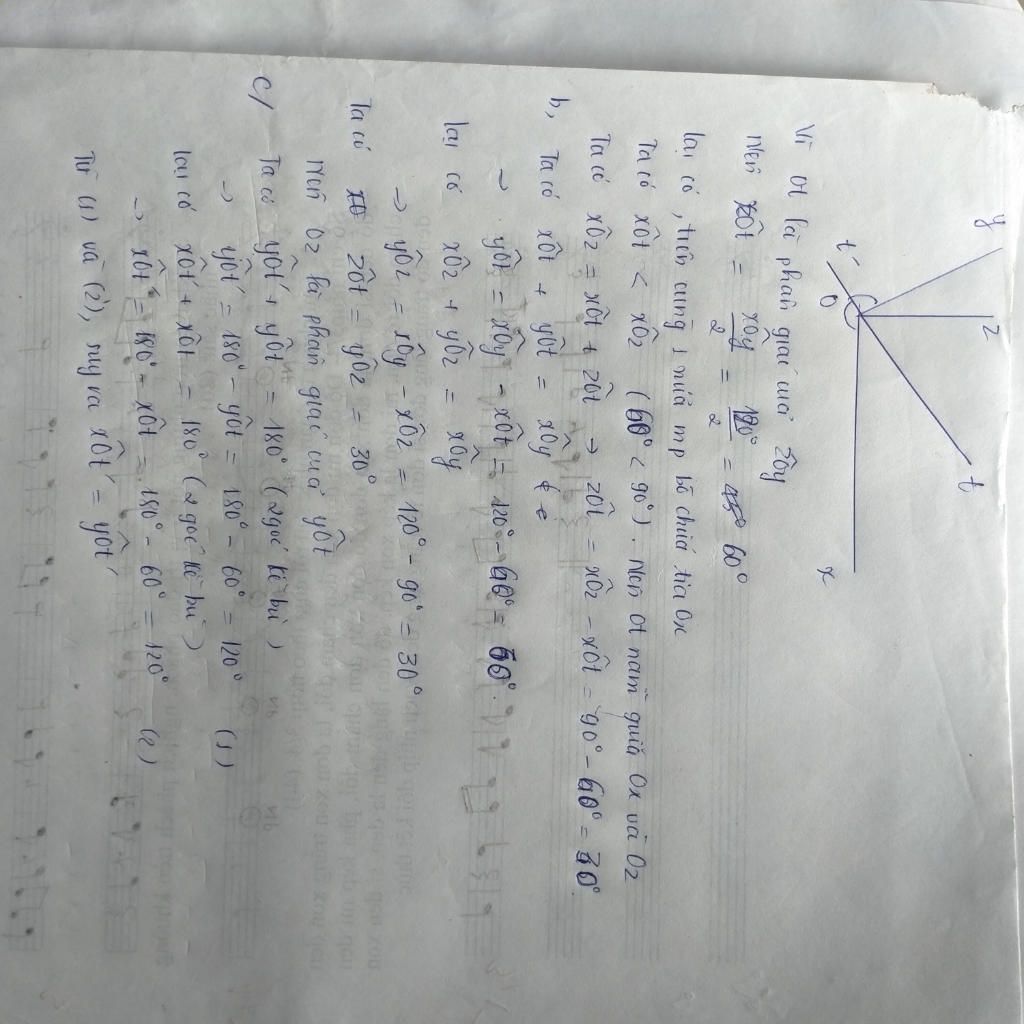 y
z
t
t'
O
x
Vì Ot là phân giác của xÔy
Nên xÔt = xÔy / 2 = 120° / 2 = 60°
lại có, trên cùng 1 nửa mp bờ chứa tia Ox
Ta có xÔt < xÔz (60° < 90°). Nên Ot nằm giữa Ox và Oz
Ta có xÔz = xÔt + zÔt → zÔt = xÔz - xÔt = 90° - 60° = 30°.
b, Ta có xÔt + yÔt = xÔy
→ yÔt = xÔy - xÔt = 120° - 60° = 60°.
lại có xÔz + yÔz = xÔy
→ yÔz = xÔy - xÔz = 120° - 90° = 30°
Ta có zÔt = yÔz = 30°
Nên Oz là phân giác của yÔt
c/ Ta có yÔt' + yÔt = 180° (2 góc kề bù)
→ yÔt' = 180° - yÔt = 180° - 60° = 120° (1)
lại có xÔt' + xÔt = 180° (2 góc kề bù)
→ xÔt' = 180° - xÔt = 180° - 60° = 120° (2)
Từ (1) và (2), suy ra xÔt' = yÔt'